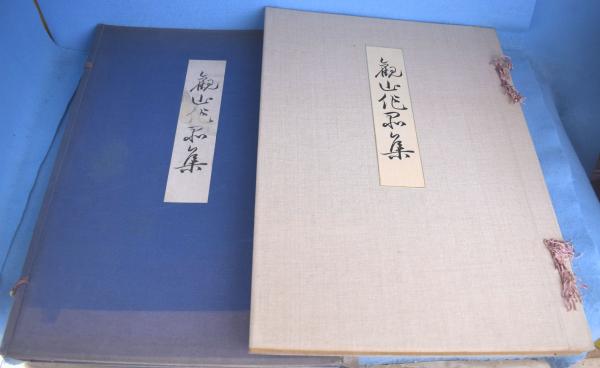 觀山作品集
觀山作品集